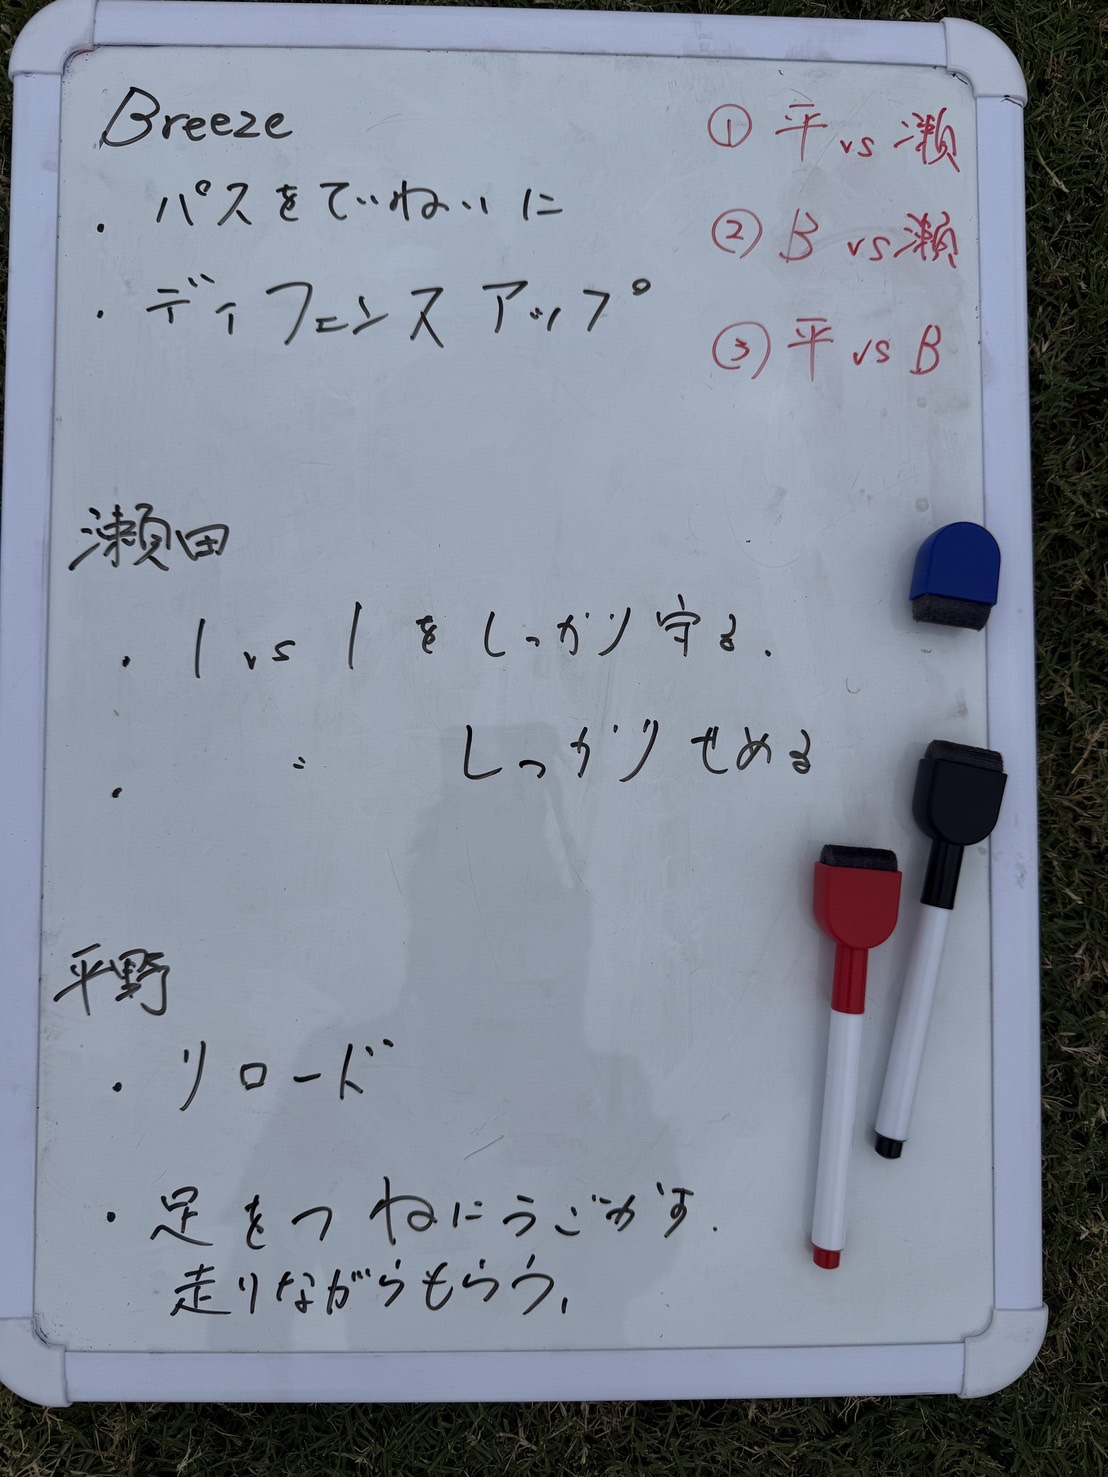 Breeze
・パスをていねいに
・ディフェンスアップ
① 平 vs 瀬
② B vs 瀬
③ 平 vs B
瀬田
・1 vs 1 をしっかり守る.
・ 〃 しっかりせめる
平野
・リロード
・足をつねにうごかす.
走りながらもらう.